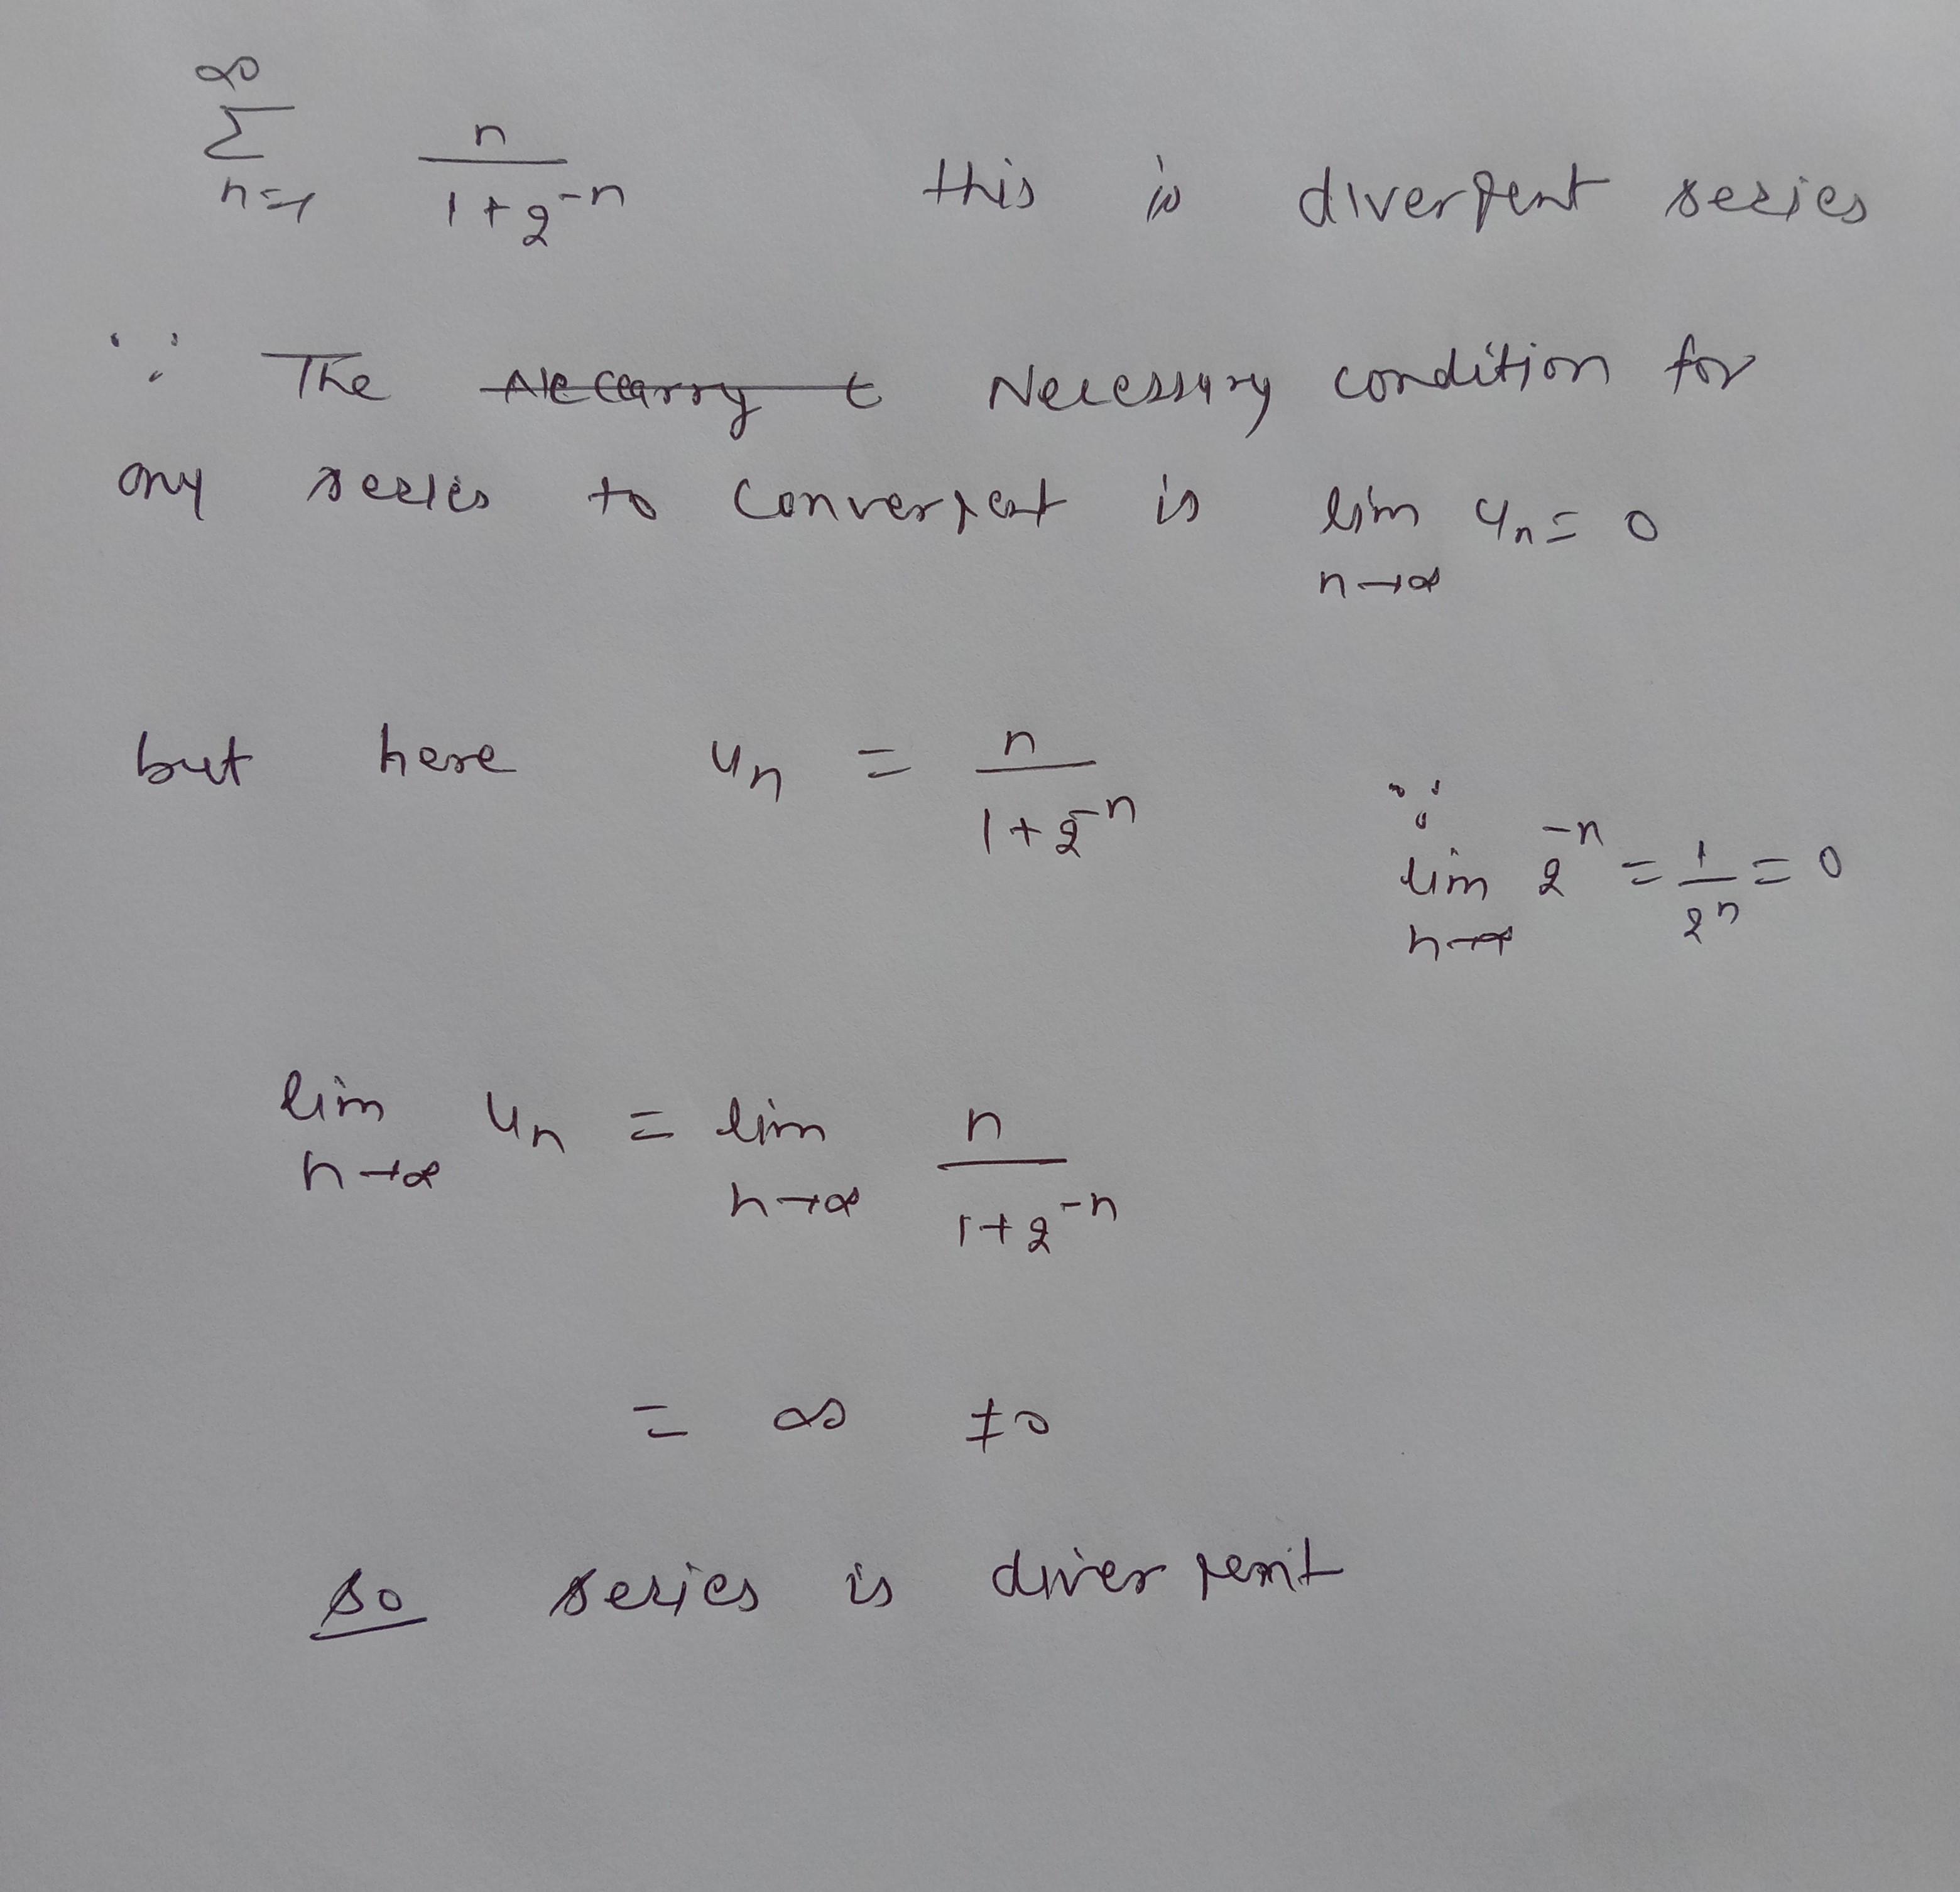 ∞
Σ n/(1+2^-n) this is divergent series
n=1
∵ The Neccarry c Necessary condition for
any series to convergent is lim u_n = 0
n→∞
but here u_n = n/(1+2^-n) ∵
lim 2^-n = 1/2^n = 0
n→∞
lim u_n = lim n/(1+2^-n)
n→∞ n→∞
= ∞ ≠ 0
so series is divergent